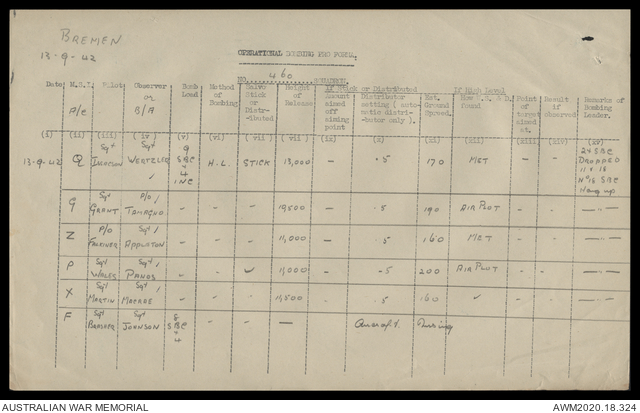 BREMEN
13-9-42
OPERATIONAL BOMBING PRO FORMA.
NO. 460 SQUADRON.
Date M.S.I. A/c Pilot Observer or B/A Bomb Load Method of Bombing Salvo Stick or Distr-ibuted Height of Release If Stick or Distributed Amount aimed off aiming point Distributor setting ( auto-matic distrib-utor only ). Est. Ground Speed. If High Level How W. S. & D. found Point of target aimed at. Result if observed Remarks of Bombing Leader.
(i) (ii) (iii) (iv) (v) (vi) (vii) (viii) (ix) (x) (xi) (xii) (xiii) (xiv) (xv)
13-9-42 Q Sgt ISAACSON Sgt WERTZLER 9 SBC + 4 INC H.L. STICK 13,000 - .5 170 MET - - 2 x SBC DROPPED 11 x 16 No 16 SBC Hang up
G Sgt GRANT P/O TAMAGNO - - - 12,500 - .5 190 AIR PLOT - -
Z P/O FALKINER Sgt APPLETON - - - 11,000 - .5 160 MET - -
P Sgt WALES Sgt PANOS - - 11,000 - .5 200 AIR PLOT - -
X Sgt MARTIN Sgt - - - 10,500 - .5 160 - -
F Sgt BRASHER Sgt JOHNSON 8 SBC + 4 - - — Aircraft Missing
AUSTRALIAN WAR MEMORIAL
AWM2020.18.324